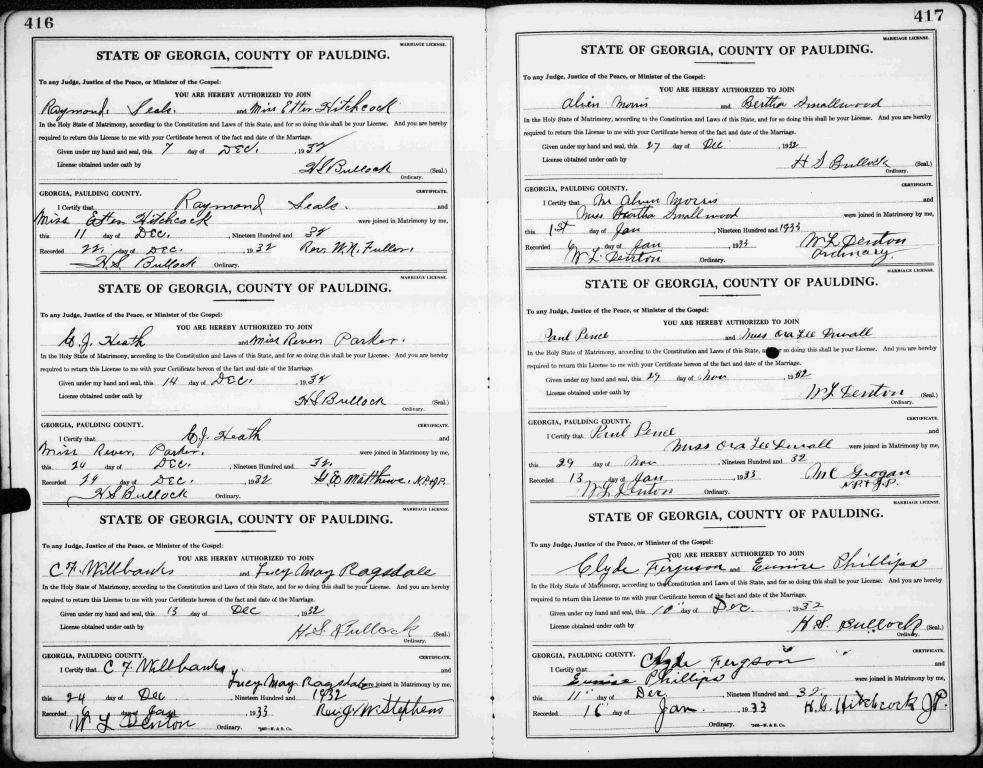 416
MARRIAGE LICENSE.
STATE OF GEORGIA, COUNTY OF PAULDING.
To any Judge, Justice of the Peace, or Minister of the Gospel:
YOU ARE HEREBY AUTHORIZED TO JOIN
Raymond Seals. and Miss Etter Hitchcock
In the Holy State of Matrimony, according to the Constitution and Laws of this State, and for so doing this shall be your License. And you are hereby
required to return this License to me with your Certificate hereon of the fact and date of the Marriage.
Given under my hand and seal, this 7 day of DEC. , 1932
License obtained under oath by H S Bullock (Seal.)
Ordinary.
GEORGIA, PAULDING COUNTY. CERTIFICATE.
I Certify that Raymond Seals. and
Miss Etter Hitchcock were joined in Matrimony by me,
this 11 day of DEC. , Nineteen Hundred and 32
Recorded 22 day of DEC. , 1932 Rev. W.R. Fuller.
H S Bullock Ordinary.
MARRIAGE LICENSE.
STATE OF GEORGIA, COUNTY OF PAULDING.
To any Judge, Justice of the Peace, or Minister of the Gospel:
YOU ARE HEREBY AUTHORIZED TO JOIN
C. J. Heath and Miss Reven Parker.
In the Holy State of Matrimony, according to the Constitution and Laws of this State, and for so doing this shall be your License. And you are hereby
required to return this License to me with your Certificate hereon of the fact and date of the Marriage.
Given under my hand and seal, this 14 day of DEC. , 1932
License obtained under oath by H S Bullock (Seal.)
Ordinary.
GEORGIA, PAULDING COUNTY. CERTIFICATE.
I Certify that C. J. Heath and
Miss Reven Parker. were joined in Matrimony by me,
this 24 day of DEC. , Nineteen Hundred and 32.
Recorded 29 day of DEC , 1932 Matthews, N.P.&J.P.
H S Bullock Ordinary.
MARRIAGE LICENSE.
STATE OF GEORGIA, COUNTY OF PAULDING.
To any Judge, Justice of the Peace, or Minister of the Gospel:
YOU ARE HEREBY AUTHORIZED TO JOIN
C. F. Willbanks and Lucy May Ragsdale
In the Holy State of Matrimony, according to the Constitution and Laws of this State, and for so doing this shall be your License. And you are hereby
required to return this License to me with your Certificate hereon of the fact and date of the Marriage.
Given under my hand and seal, this 13 day of Dec , 1932
License obtained under oath by H. S. Bullock (Seal.)
Ordinary.
GEORGIA, PAULDING COUNTY. CERTIFICATE.
I Certify that C F Willbanks and
Lucy May Ragsdale were joined in Matrimony by me,
this 24 day of Dec , Nineteen Hundred and 1932
Recorded 6 day of Jan , 1933 Rev. J. W. Stephens
W L Denton Ordinary.
417
MARRIAGE LICENSE.
STATE OF GEORGIA, COUNTY OF PAULDING.
To any Judge, Justice of the Peace, or Minister of the Gospel:
YOU ARE HEREBY AUTHORIZED TO JOIN
Alvin Morris and Bertha Smallwood
In the Holy State of Matrimony, according to the Constitution and Laws of this State, and for so doing this shall be your License. And you are hereby
required to return this License to me with your Certificate hereon of the fact and date of the Marriage.
Given under my hand and seal, this 27 day of Dec , 1932
License obtained under oath by H S Bullock (Seal.)
Ordinary.
GEORGIA, PAULDING COUNTY. CERTIFICATE.
I Certify that Mr Alvin Morris and
Miss Bertha Smallwood were joined in Matrimony by me,
this 1st day of Jan , Nineteen Hundred and 1933
Recorded 6 day of Jan , 1933 W L Denton
W L Denton Ordinary. Ordinary.
MARRIAGE LICENSE.
STATE OF GEORGIA, COUNTY OF PAULDING.
To any Judge, Justice of the Peace, or Minister of the Gospel:
YOU ARE HEREBY AUTHORIZED TO JOIN
Paul Pence and Miss Ora Lee Duvall
In the Holy State of Matrimony, according to the Constitution and Laws of this State, so doing this shall be your License. And you are hereby
required to return this License to me with your Certificate hereon of the fact and date of the Marriage.
Given under my hand and seal, this 29 day of Nov , 1932
License obtained under oath by W L Denton (Seal)
Ordinary.
GEORGIA, PAULDING COUNTY. CERTIFICATE.
I Certify that Paul Pence and
Miss Ora Lee Duvall were joined in Matrimony by me,
this 29 day of Nov , Nineteen Hundred and 32
Recorded 13 day of Jan , 1933 Grogan
W L Denton Ordinary. N.P. & J.P.
MARRIAGE LICENSE.
STATE OF GEORGIA, COUNTY OF PAULDING.
To any Judge, Justice of the Peace, or Minister of the Gospel:
YOU ARE HEREBY AUTHORIZED TO JOIN
Clyde Ferguson and Eunice Phillips
In the Holy State of Matrimony, according to the Constitution and Laws of this State, and for so doing this shall be your License. And you are hereby
required to return this License to me with your Certificate hereon of the fact and date of the Marriage.
Given under my hand and seal, this 10" day of Dec. , 1932
License obtained under oath by H. S. Bullock (Seal)
Ordinary.
GEORGIA, PAULDING COUNTY. CERTIFICATE.
I Certify that Clyde Fergson and
Eunice Phillips were joined in Matrimony by me,
this 11" day of Dec , Nineteen Hundred and 32
Recorded 16 day of Jan. , 1933 Hitchcock J.P.
Ordinary.